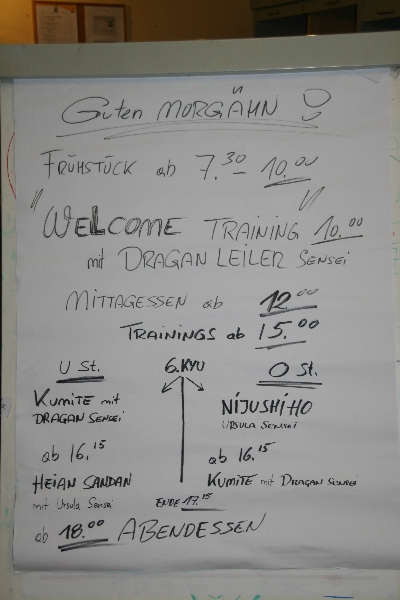 Guten MORGÄHN !
FRÜHSTÜCK ab 7.30 – 10.00
"WELCOME TRAINING 10.00"
mit DRAGAN LEILER SENSEI
MITTAGESSEN ab 12.00
TRAININGS ab 15.00
U St. 6. KYU O St.
KUMITE mit
DRAGAN SENSEI
NIJUSHIHO
URSULA SENSEI
ab 16.15
ab 16.15
HEIAN SANDAN
mit Ursula Sensei
KUMITE mit DRAGAN SENSEI
ENDE 17.15
ab 18.00 ABENDESSEN